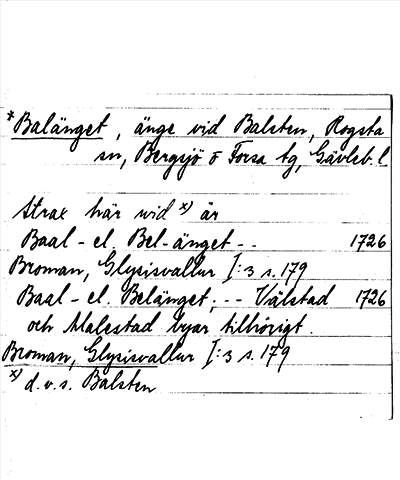 *Balänget, änge vid Balsten, Rogsta
sn, Bergsjö o Forsa tg, Gävleb. l
Strax här wid x) är
Baal- el. Bel-änget -- 1726
Broman, Glysisvallur I:3 s. 179
Baal- el. Belänget, -- Välstad 1726
och Malestad byar tillhörigt.
Broman, Glysisvallur I:3 s. 179
x) d.v.s. Balsten